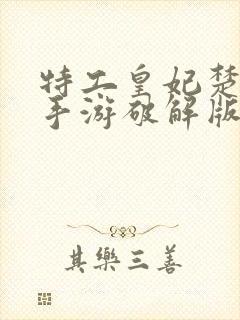 特工皇妃楚
手游破解版
其樂三善